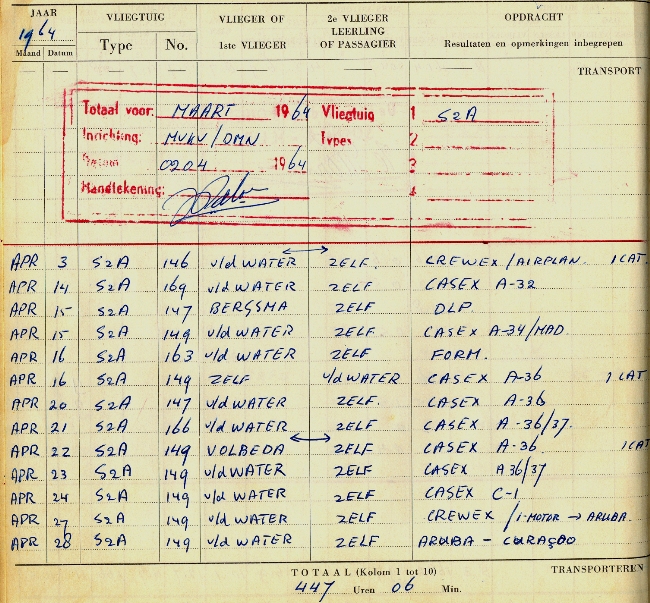 JAAR VLIEGTUIG VLIEGER OF 2e VLIEGER OPDRACHT
1964 LEERLING
Maand Datum Type No. 1ste VLIEGER OF PASSAGIER Resultaten en opmerkingen inbegrepen
TRANSPORT
Totaal voor: MAART 1964 Vliegtuig 1 S2A
Inrichting: MVKV/OMN Types 2
Datum 0204 1964 3
Handtekening: 4
APR 3 S2A 146 v/d WATER ZELF. CREWEX/AIRPLAN. 1 CAT.
APR 14 S2A 169 v/d WATER ZELF CASEX A-32
APR 15 S2A 147 BERGSMA ZELF DLP
APR 15 S2A 149 v/d WATER ZELF CASEX A-34/MAD
APR 16 S2A 163 v/d WATER ZELF FORM.
APR 16 S2A 149 ZELF v/d WATER CASEX A-36 1 CAT
APR 20 S2A 147 v/d WATER ZELF. CASEX A-36
APR 21 S2A 166 v/d WATER ZELF CASEX A-36/37.
APR 22 S2A 149 VOLBEDA ZELF CASEX A-36 1 CAT
APR 23 S2A 149 v/d WATER ZELF CASEX A36/37
APR 24 S2A 149 v/d WATER ZELF CASEX C-1
APR 27 S2A 149 v/d WATER ZELF CREWEX /1-MOTOR → ARUBA.
APR 28 S2A 149 v/d WATER ZELF ARUBA - CURAÇAO
TOTAAL (Kolom 1 tot 10) TRANSPORTEREN
447 Uren 06 Min.